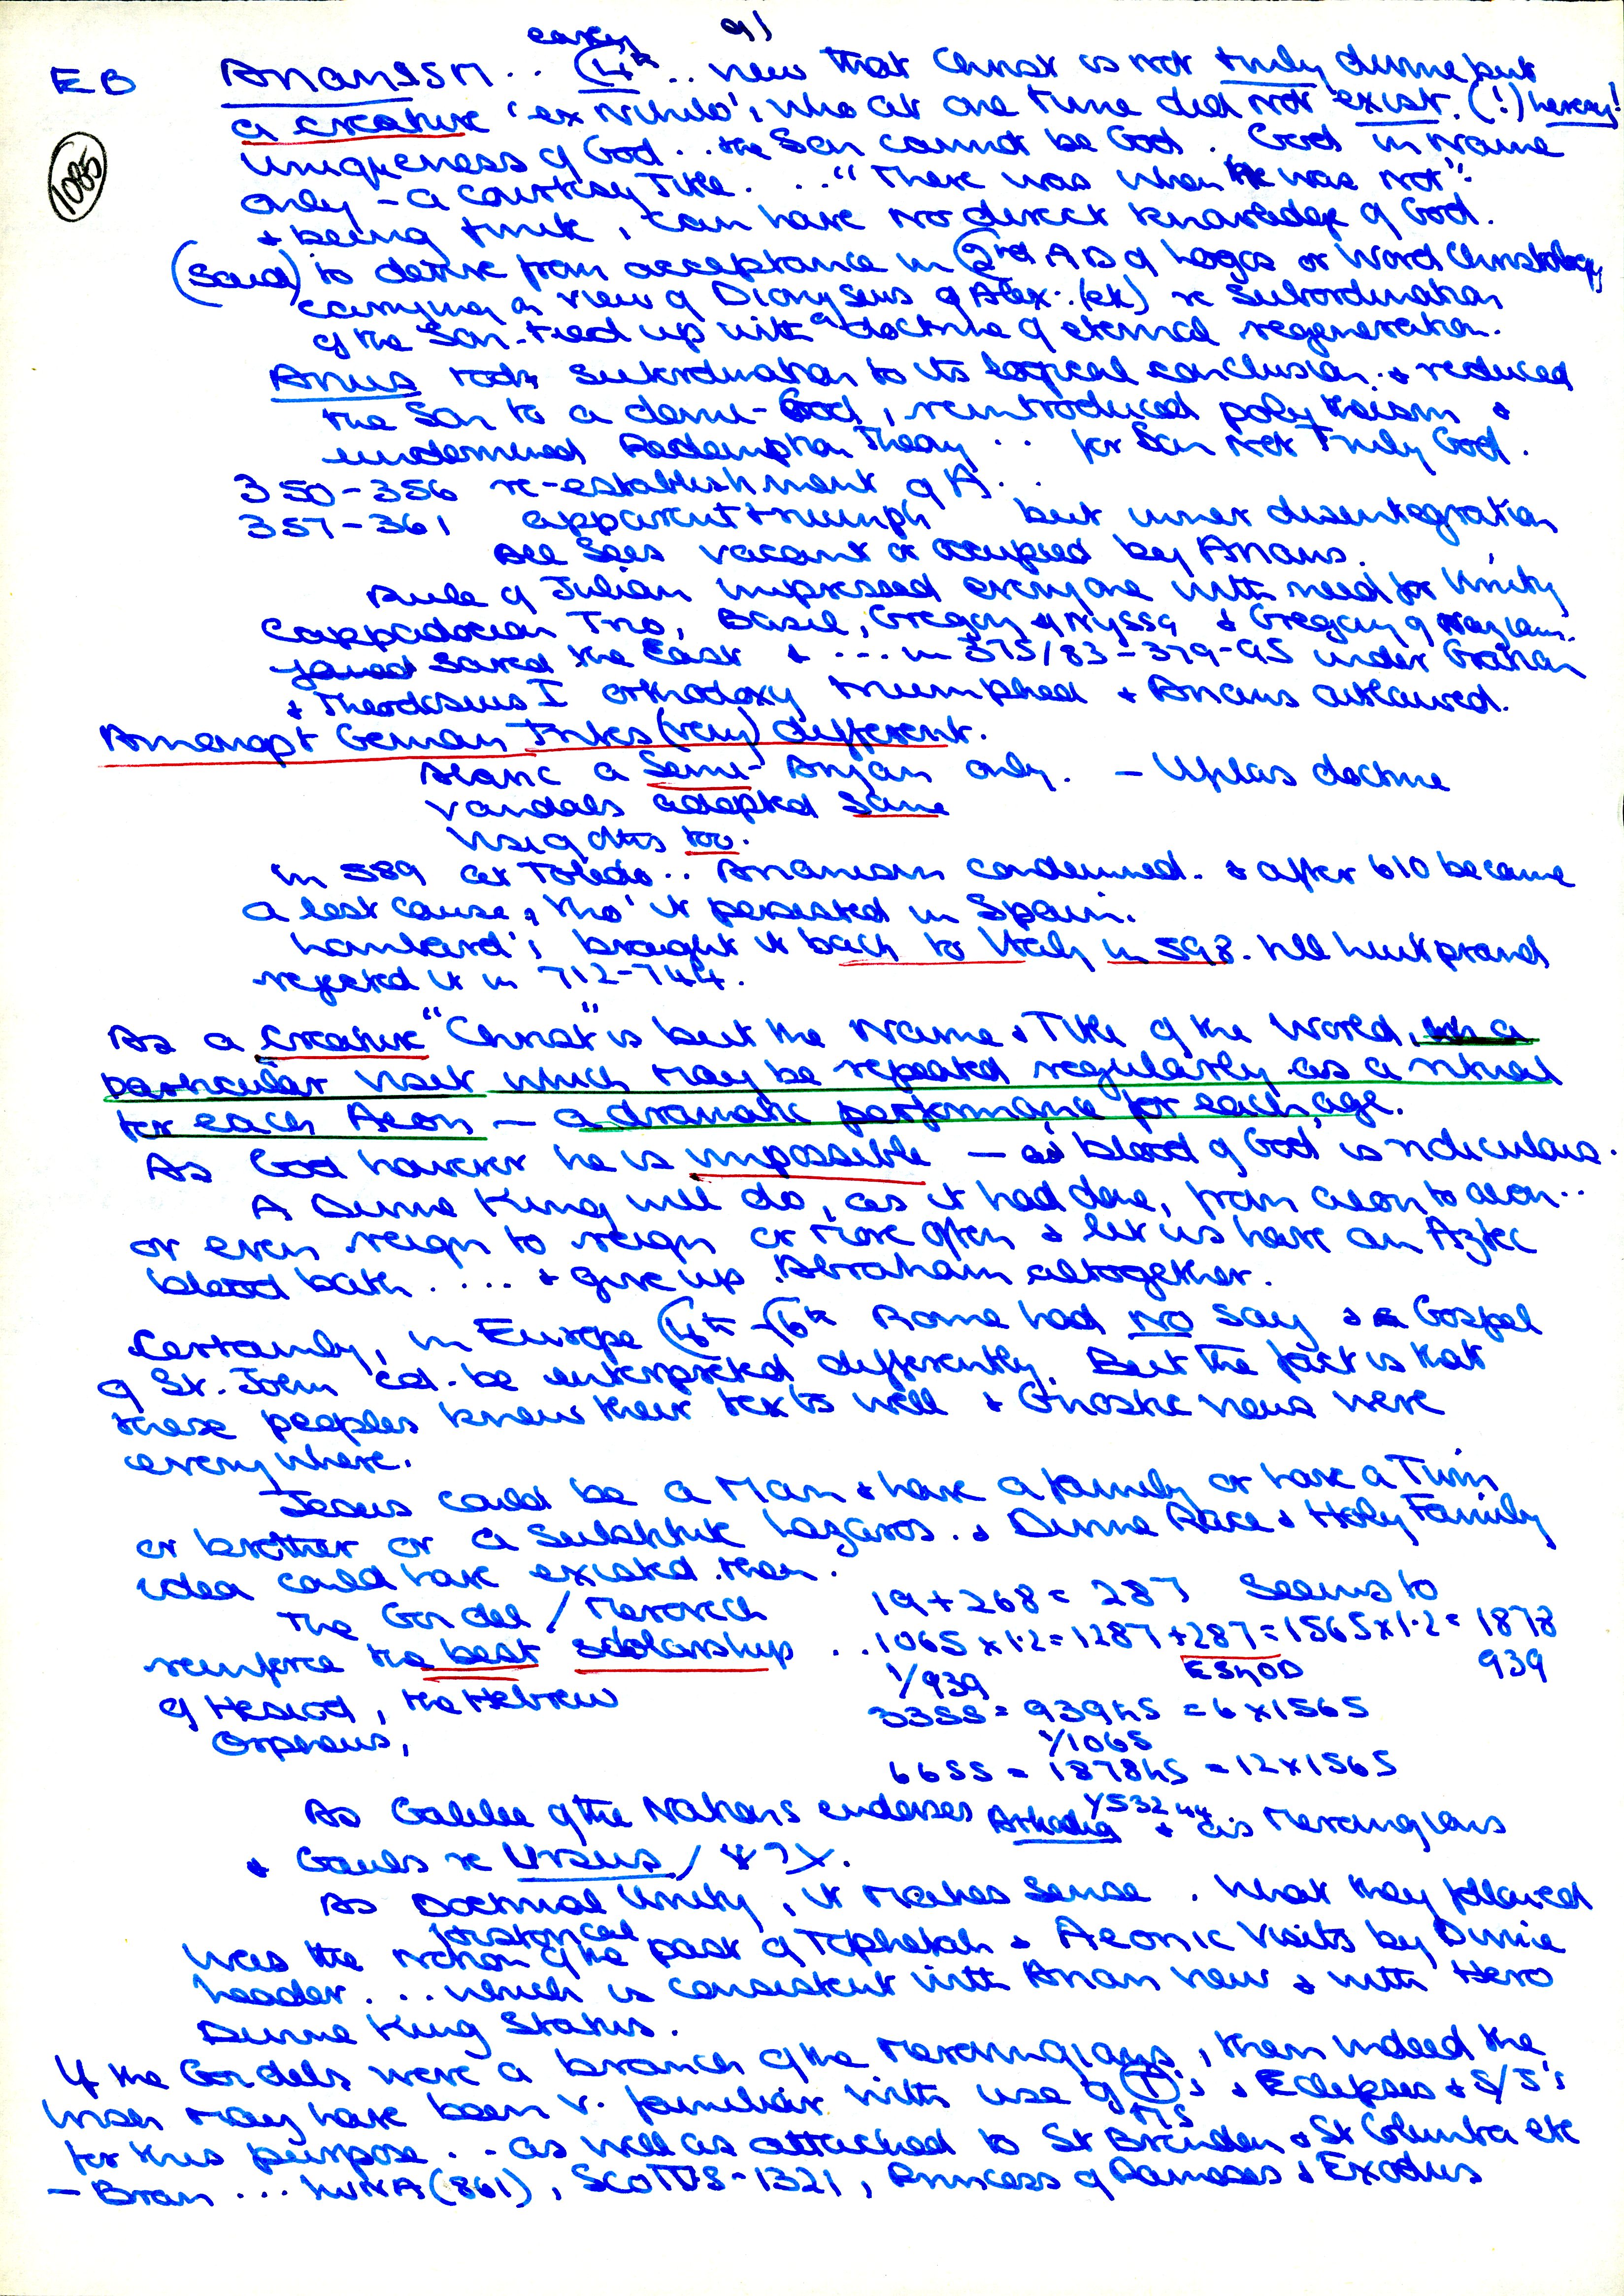 91
early
EB Arianism .. (4th .. view that Christ is not truly divine but
1085
a creature 'ex nihilo', who at one time did not exist. (!) heresy!
Uniqueness of God .. the Son cannot be God . God in Name
only - a courtesy Title. .. "There was when He was not".
& being finite, can have no direct knowledge of God.
(Said) to derive from acceptance in (2nd AD of Logos or Word Christology
carrying on view of Dionysius of Alex. (ek) re Subordination
of the Son - tied up with a doctrine of eternal regeneration.
Arius took Subordination to its logical conclusion. & reduced
the Son to a demi-God, reintroduced polytheism &
undermined Redemption Theory .. for Son Not Truly God.
350-356 re-establishment of A..
357-361 apparent triumph but inner disintegration
All Sees vacant or occupied by Arians.
Rule of Julian impressed everyone with need for Unity
Cappadocian Trio, Basil, Gregory of Nyssa & Gregory of
saved the East & ... in 375/83-379-95 under Gratian
& Theodosius I orthodoxy triumphed & Arians outlawed.
Amongst German Tribes (very) different.
Alaric a Semi-Arian only. - Ulfilas doctrine
Vandals adopted same
Visigoths too.
In 589 at Toledo .. Arianism condemned. & after 610 became
a lost cause, tho' it persisted in Spain.
Lombard's brought it back to Italy in 598. till Luitprand
rejected it in 712-744.
As a creature "Christ" is but the Name & Title of the World, in a
particular visit which may be repeated regularly as a ritual
for each Aeon — a dramatic performance for each age.
As God however he is impossible — as blood of God is ridiculous.
A Divine King will do, as it had done, from aeon to aeon ..
or even reign to reign or more often & let us have an Aztec
blood bath .... & give up Abraham altogether.
Certainly, in Europe (4th-(6th Rome had NO say & Gospel
of St. John cd. be interpreted differently. But the fact is that
these peoples knew their texts well & Gnostic views were
everywhere.
Jesus could be a Man & have a family or have a Twin
or brother or a Substitute Lazaros. & Divine Race & Holy Family
idea could have existed then.
The Goidel / Merovech
reinforce the best scholarship ..
of Hesiod, the Hebrew
Orpheus,
19+268 = 287 Seems to
1065 x 1.2 = 1287 + 287 = 1565 x 1.2 = 1878
1/939 939
33SS = 939hS = 6 x 1565
1/1065
66SS = 1878hS = 12 x 1565
As Galilee of the Nations endorses Arkadia & as Merovingians
& Gauls re Ursus /
As Doctrinal Unity, it makes sense. What they followed
historical
was the notion of the past of Tophetah & Aeonic Visits by Divine
Leader ... which is consistent with Arian view & with Hero
Divine King Status.
If the Goidels were a branch of the Merovingians, then indeed the
Irish may have been v. familiar with use of (T)'s & Eclipses & S/S's
for this purpose .. as well as attached to St Brendan & St Columba etc
— Bran ... LUNA (861), SCOTTUS - 1321, Princess of Rameses & Exodus